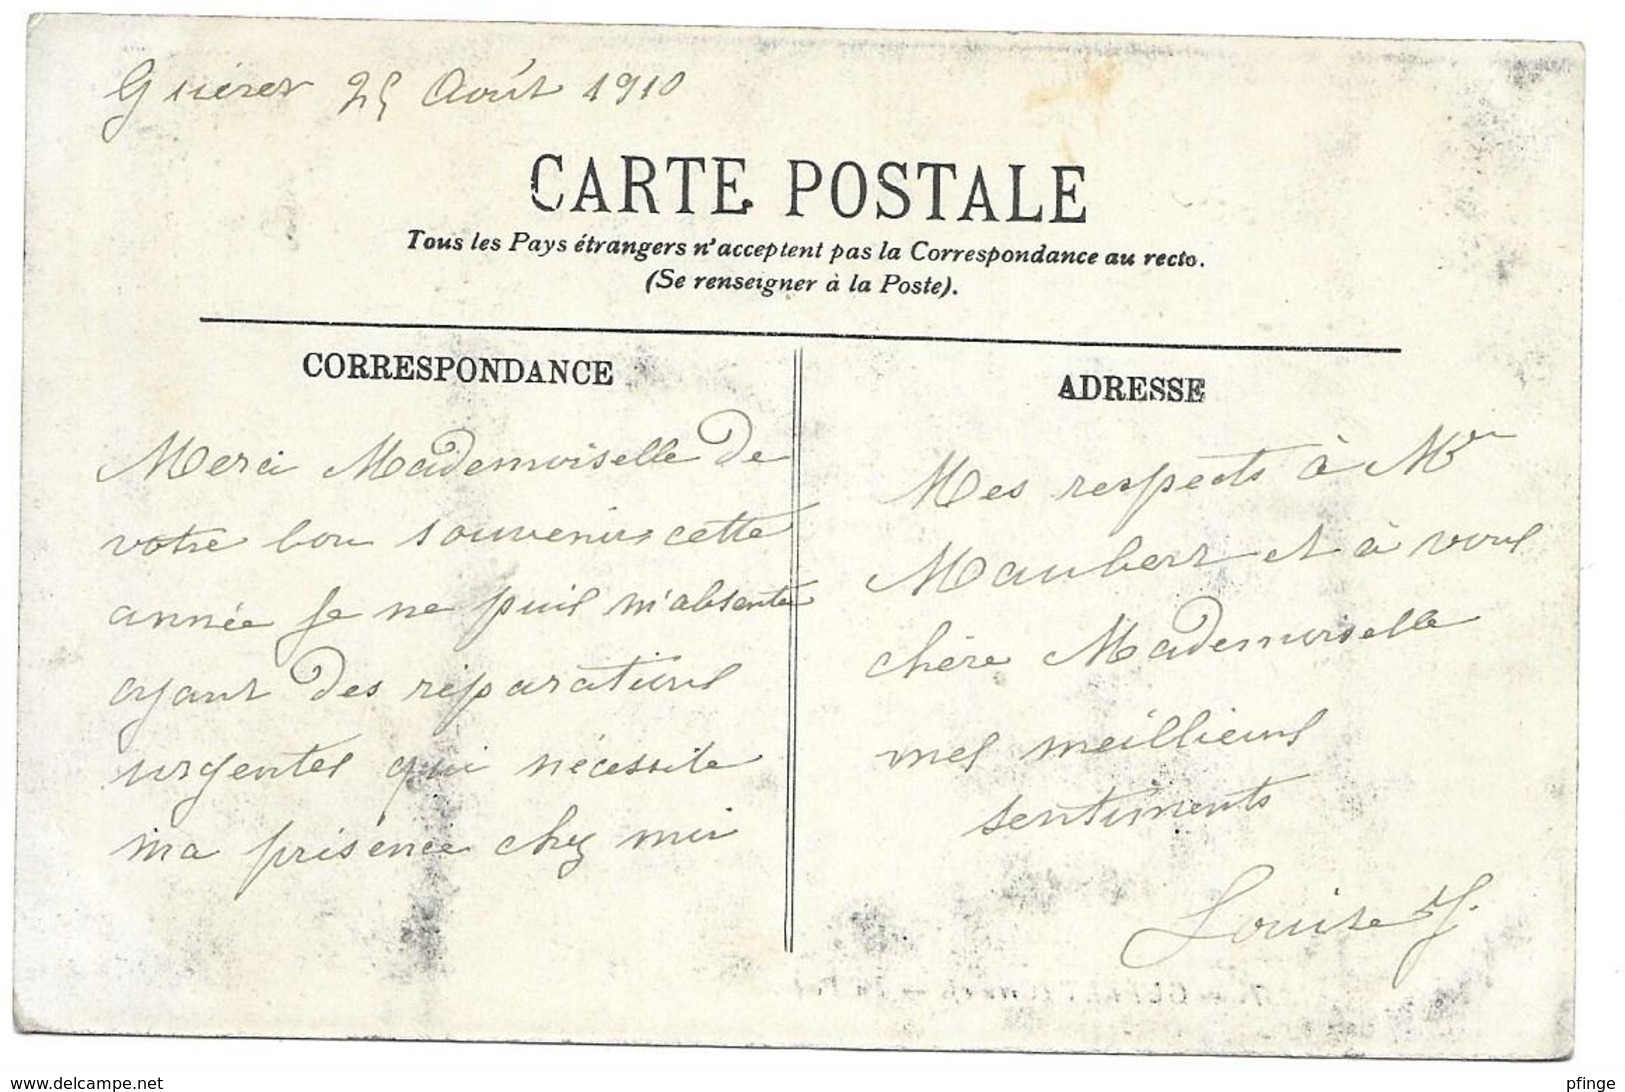 Guéret 25 Août 1910
CARTE POSTALE
Tous les Pays étrangers n'acceptent pas la Correspondance au recto.
(Se renseigner à la Poste).
CORRESPONDANCE
Merci Mademoiselle de
votre bon souvenir, cette
année je ne puis m'absenter
ayant des réparations
urgentes qui nécessite
ma présence chez moi
ADRESSE
Mes respects à Mr
Maubert et à vous
chère Mademoiselle
mes meilleurs
sentiments
Louise J.
https://www.delcampe.net
pfinge